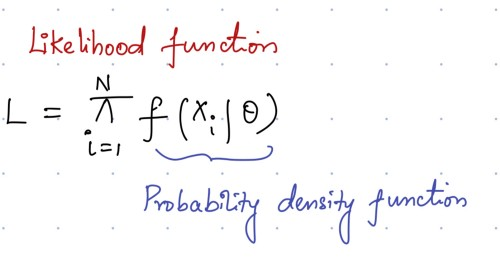 Likelihood function
L = ∏_{i=1}^{N} f(x_i | θ)
Probability density function